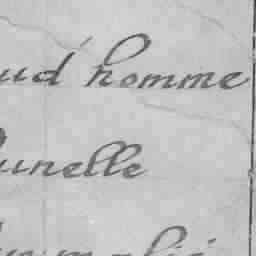 ud' homme
unelle